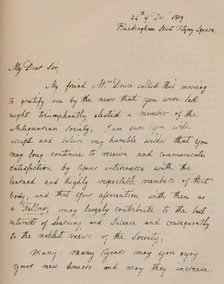 24th of Decr 1819
Buckingham Street Fitzroy Square
My Dear Sir,
My friend Mr Douce called this morning
to gratify me by the news that you were last
night triumphantly elected a member of the
Antiquarian Society, I am sure you will
accept and believe my humble wishes that you
may long continue to receive and communicate
satisfaction by your intercourse with the
learned and highly respectable members of that
body, and that your association with them as
a Fellow, may largely contribute to the best
interests of Learning and Science and consequently
to the noblest views of the Society,
Many, many years may you enjoy
your new honors and may they increase